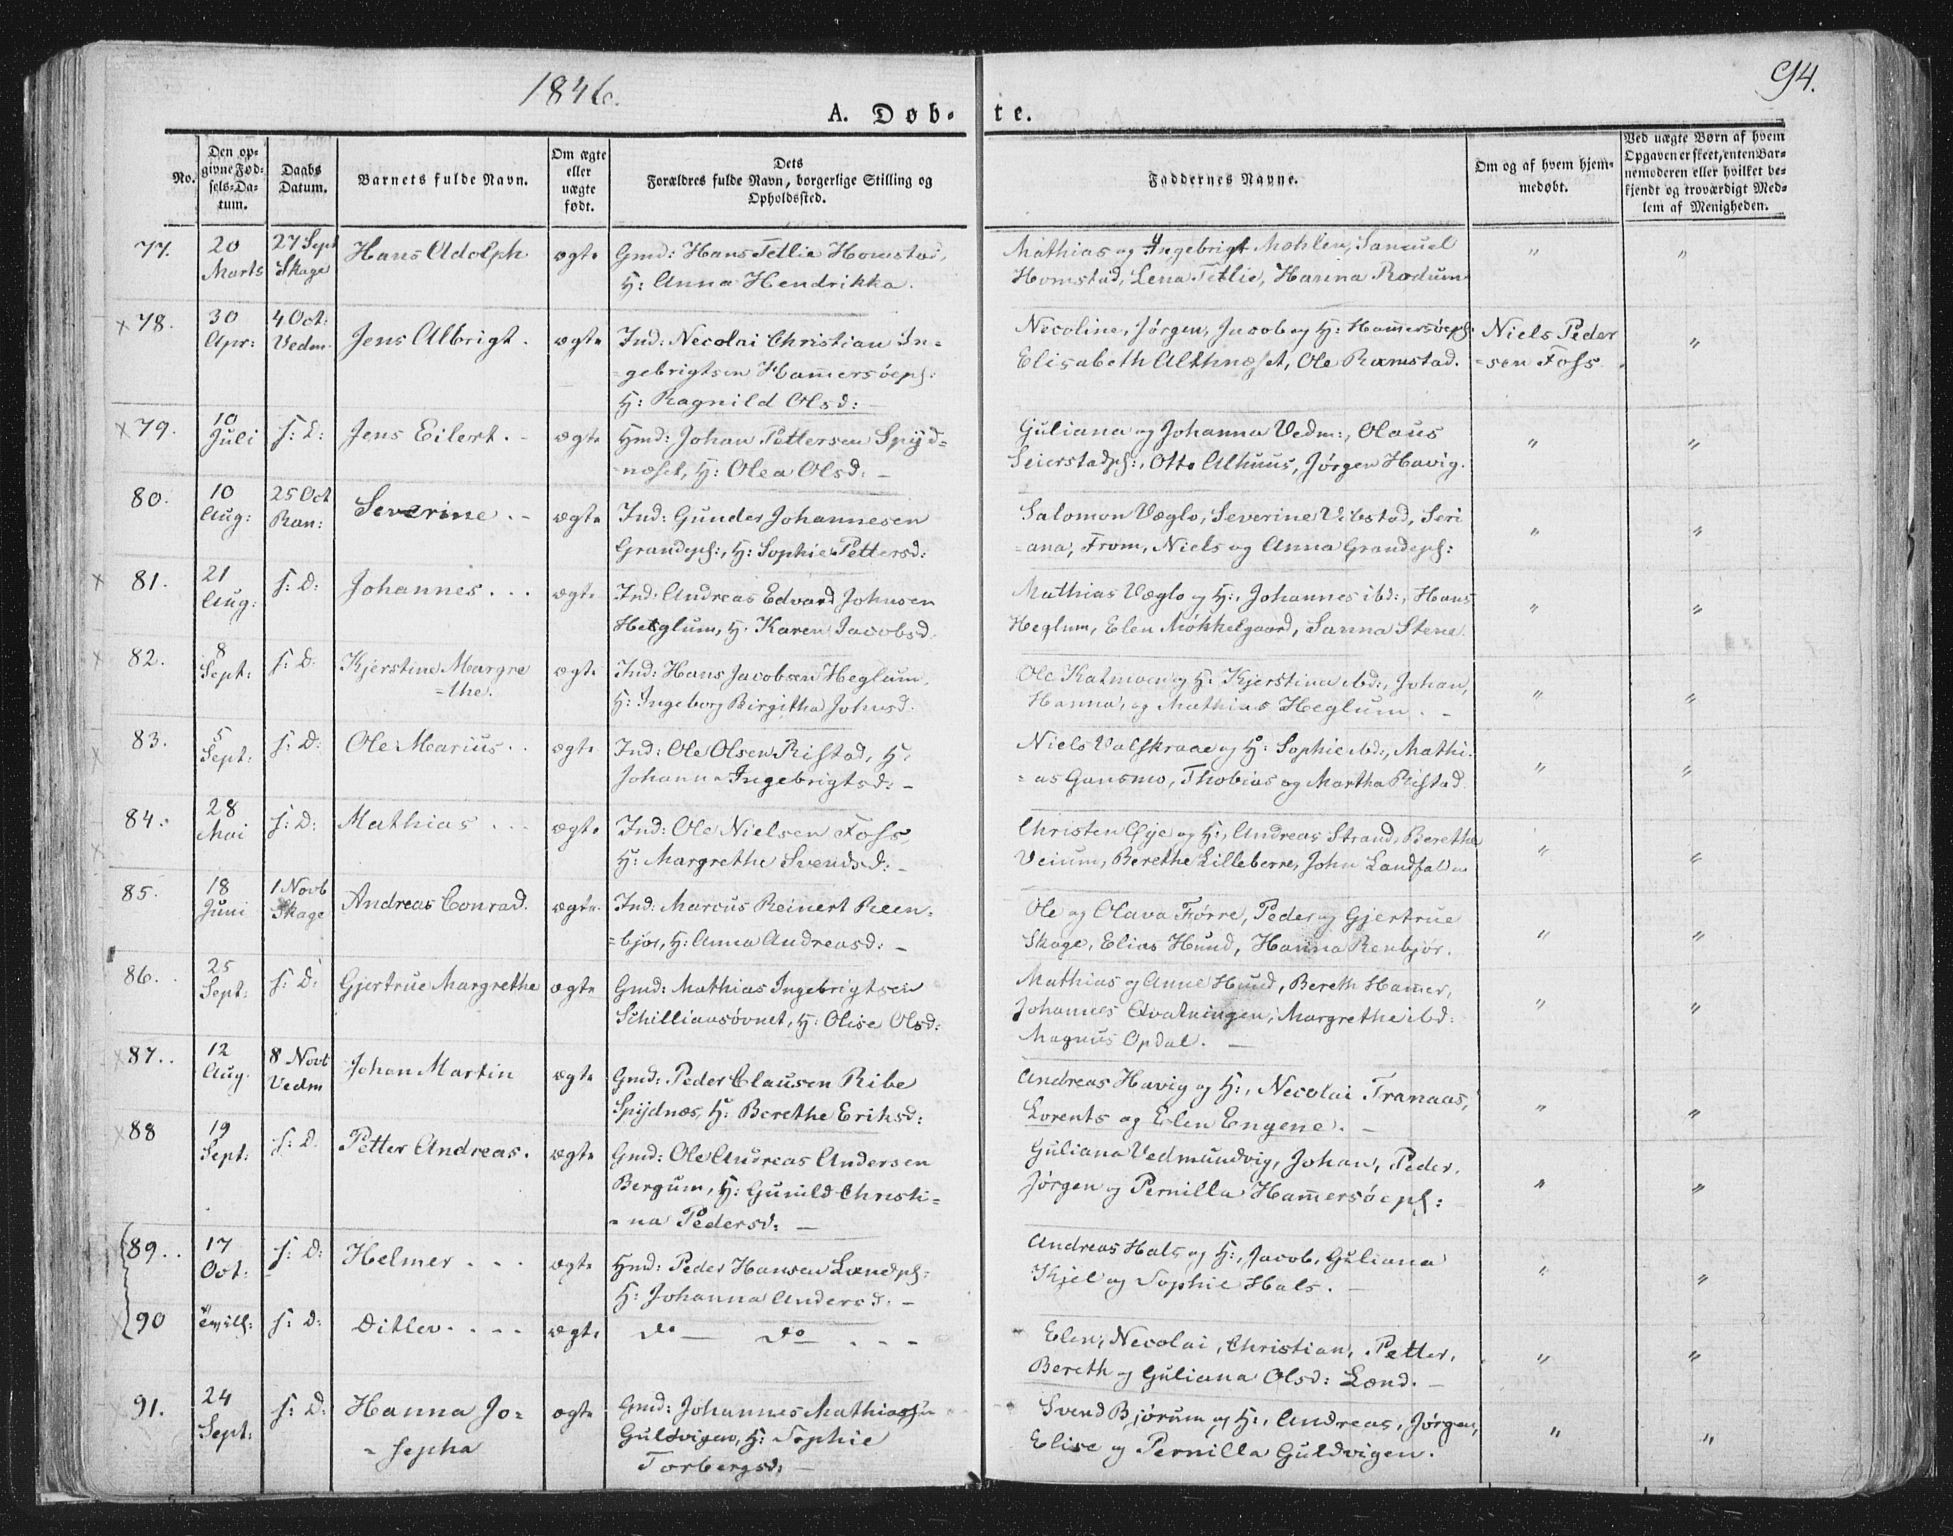 1846.
94.
A. Døb-
te.
No.
Den op-
givne Fød-
sels-Da-
tum.
Daabs
Datum.
Barnets fulde Navn.
Om ægte
eller
uægte
født.
Dets
Forældres fulde Navn, borgerlige Stilling og
Opholdssted.
Faddernes Navne.
Om og af hvem hjem-
medøbt.
Ved uægte Børn af hvem
Opgaven er skeet, enten Bar-
nemoderen eller hvilket be-
kjendt og troværdigt Med-
lem af Menigheden.
77. 20 Marts 27 Sept Skage Hans Adolph ægte Gmd: Hans Tetlie Homstad,
H: Anna Hendrikka.
Mathias og Ingebrigt Mohlen, Samuel
Homstad, Lena Tetlie, Hanna Rodum
" "
x 78. 30 Apr: 4 Oct: Vedm Jens Albrigt. ægte Ind: Necolai Christian In=
=gebrigtsen Hamersöepl:
H: Ragnild Olsd:
Necoline, Jörgen, Jacob og H: Hamersöepl.
Elisabeth Althneset, Ole Ramstad.
Niels Peder
=sen Foss. "
x 79. 10 Juli s: D: Jens Eilert. - ægte Hmd: Johan Pettersen Spijd=
=næset, H: Olea Olsd: -
Guliana og Johanna Vedm:, Olaus
Seierstadpl:, Otto Alhuus, Jörgen Havig.
" "
80. 10 Aug: 25 Oct Ran: Severine. - ægte Ind: Gunder Johannesen
Grandepl:, H: Sophie Pettersd:
Salomon Væglo, Severine Vibstad, Seri
=ana, From, Niels og Anna Grandepl:
" "
x 81. 21 Aug: s: D: Johannes. . . ægte Ind: Andreas Edvard Johnsen
Heglum, H. Karen Jacobsd.
Mathias Væglo og H:, Johannes ibd:, Hans
Heglum, Elen Mökkelgaard, Sanna Stene.
" "
x 82. 8 Sept: s: D: Kjerstine Margre
=the. ægte Ind: Hans Jacobsen Heglum.
H: Ingeborg Birgitha Johnsd.
Ole Katmoen og H. Kjerstina ibd:, Johan,
Hanna, og Mathias Heglum. -
" "
x 83. 5 Sept: s: D: Ole Marius. . ægte Ind: Ole Olsen Ristad, H.
Johanna Ingebrigtsd: -
Niels Valskraae og H: Sophie ibd:, Mathi-
=as Gansmo, Thobias og Martha Ristad.
" "
x 84. 28 Mai s: D: Mathias . . . ægte Ind: Ole Nielsen Foss,
H: Margrethe Svendsd: -
Christen Öye og H:, Andreas Strand, Berethe
Veium, Berethe Lilleberre, John Landfald
" "
85. 18 Juni 1 Novb Skage Andreas Conrad. ægte Ind: Marcus Reinert Reen-
=bjor, H: Anna Andreasd: -
Ole og Olava Törre, Peder og Gjertrue
Skage, Elias Hund, Hanna Renbjör.
" "
86. 25 Sept: s: D: Gjertrue Margrethe ægte Gmd: Mathias Ingebrigtsen
Schilliaasövnet, H: Olise Olsd:
Mathias og Anne Hund, Bereth Hamer,
Johannes Qvatningen, Margrethe ibd:
Magnus Opdal. -
" "
x 87. . 12 Aug. 8 Novb Vedm Johan Martin ægte Gmd: Peder Clausen Ribe
Spijdnæs, H: Berethe Eriksd:
Andreas Havig og H:, Necolai Tranaas,
Lorents og Elen Engene. -
" "
x 88 19 Sept: s: D. Petter Andreas. ægte Gmd: Ole Andreas Andersen
Bergum, H: Gunild Christi=
=na Pedersd: -
Guliana Vedmundvig, Johan, Peder,
Jörgen og Pernilla Hamersöepl:
" "
89. . 17 Oct: s: D: Helmer . . . ægte Hmd: Peder Hansen Lændpl:
H: Johanna Andersd. -
Andreas Hals og H:, Jacob, Guliana
Kjel og Sophie Hals. -
" "
90 Tvill: s: D: Ditlev. . . . ægte do - do - - -
Elen, Necolai, Christian, Petter,
Bereth og Guliana Olsd: Lænd. -
" "
91. 24 Sept: s: D: Hanna Jo=
=sepha ægte Gmd: Johannes Mathiassen
Guldvigen, H: Sophie
Torbergsd: -
Svend Bjørum og H:, Andreas, Jörgen,
Elise og Pernilla Guldvigen.
" "